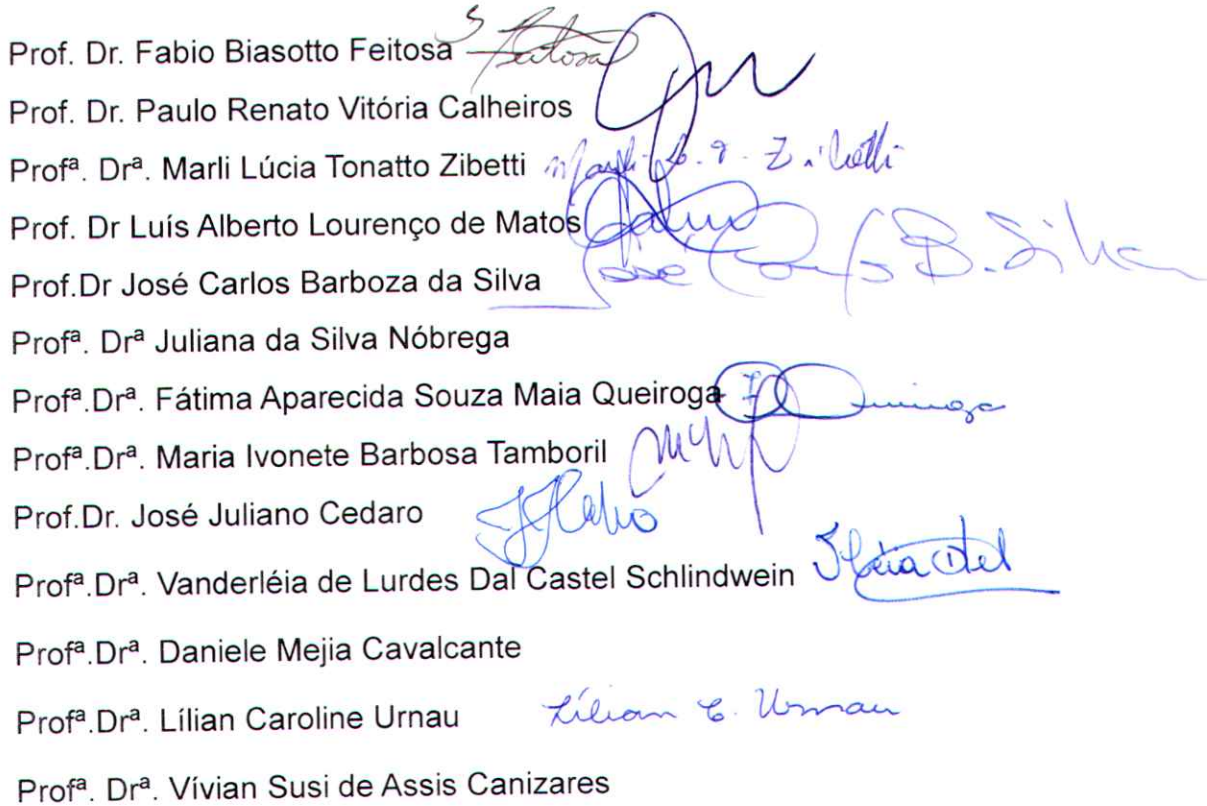 Prof. Dr. Fabio Biasotto Feitosa Feitosa
Prof. Dr. Paulo Renato Vitória Calheiros
Profª. Drª. Marli Lúcia Tonatto Zibetti Marli L. T. Zibetti
Prof. Dr Luís Alberto Lourenço de Matos
Prof.Dr José Carlos Barboza da Silva José Carlos B. Silva
Profª. Drª Juliana da Silva Nóbrega
Profª.Drª. Fátima Aparecida Souza Maia Queiroga Queiroga
Profª.Drª. Maria Ivonete Barbosa Tamboril
Prof.Dr. José Juliano Cedaro
Profª.Drª. Vanderléia de Lurdes Dal Castel Schlindwein
Profª.Drª. Daniele Mejia Cavalcante
Profª.Drª. Lílian Caroline Urnau Lílian C. Urnau
Profª. Drª. Vívian Susi de Assis Canizares